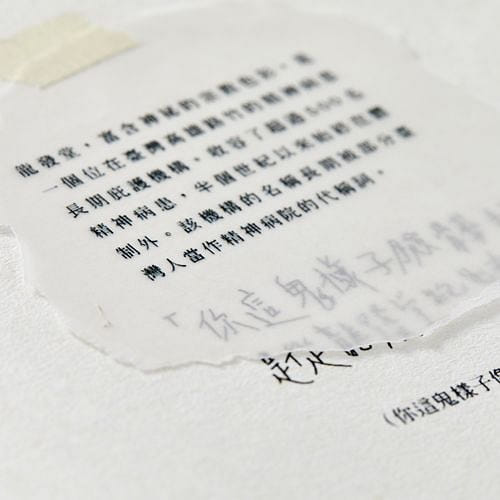 龍發堂,富含神祕的宗教色彩,是
一個位在臺灣高雄路竹的精神病患
長期庇護機構,收容了超過500名
精神病患,半個世紀以來始終在體
制外。該機構的名稱長期被部分臺
灣人當作精神病院的代稱詞。
「你這鬼樣子
(你這鬼樣子像